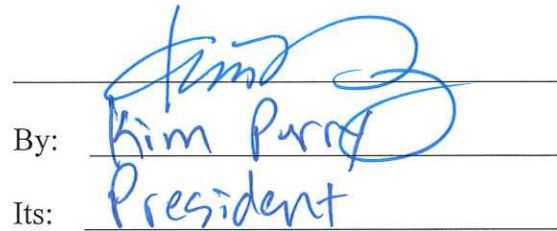 By: Kim Purry
Its: President